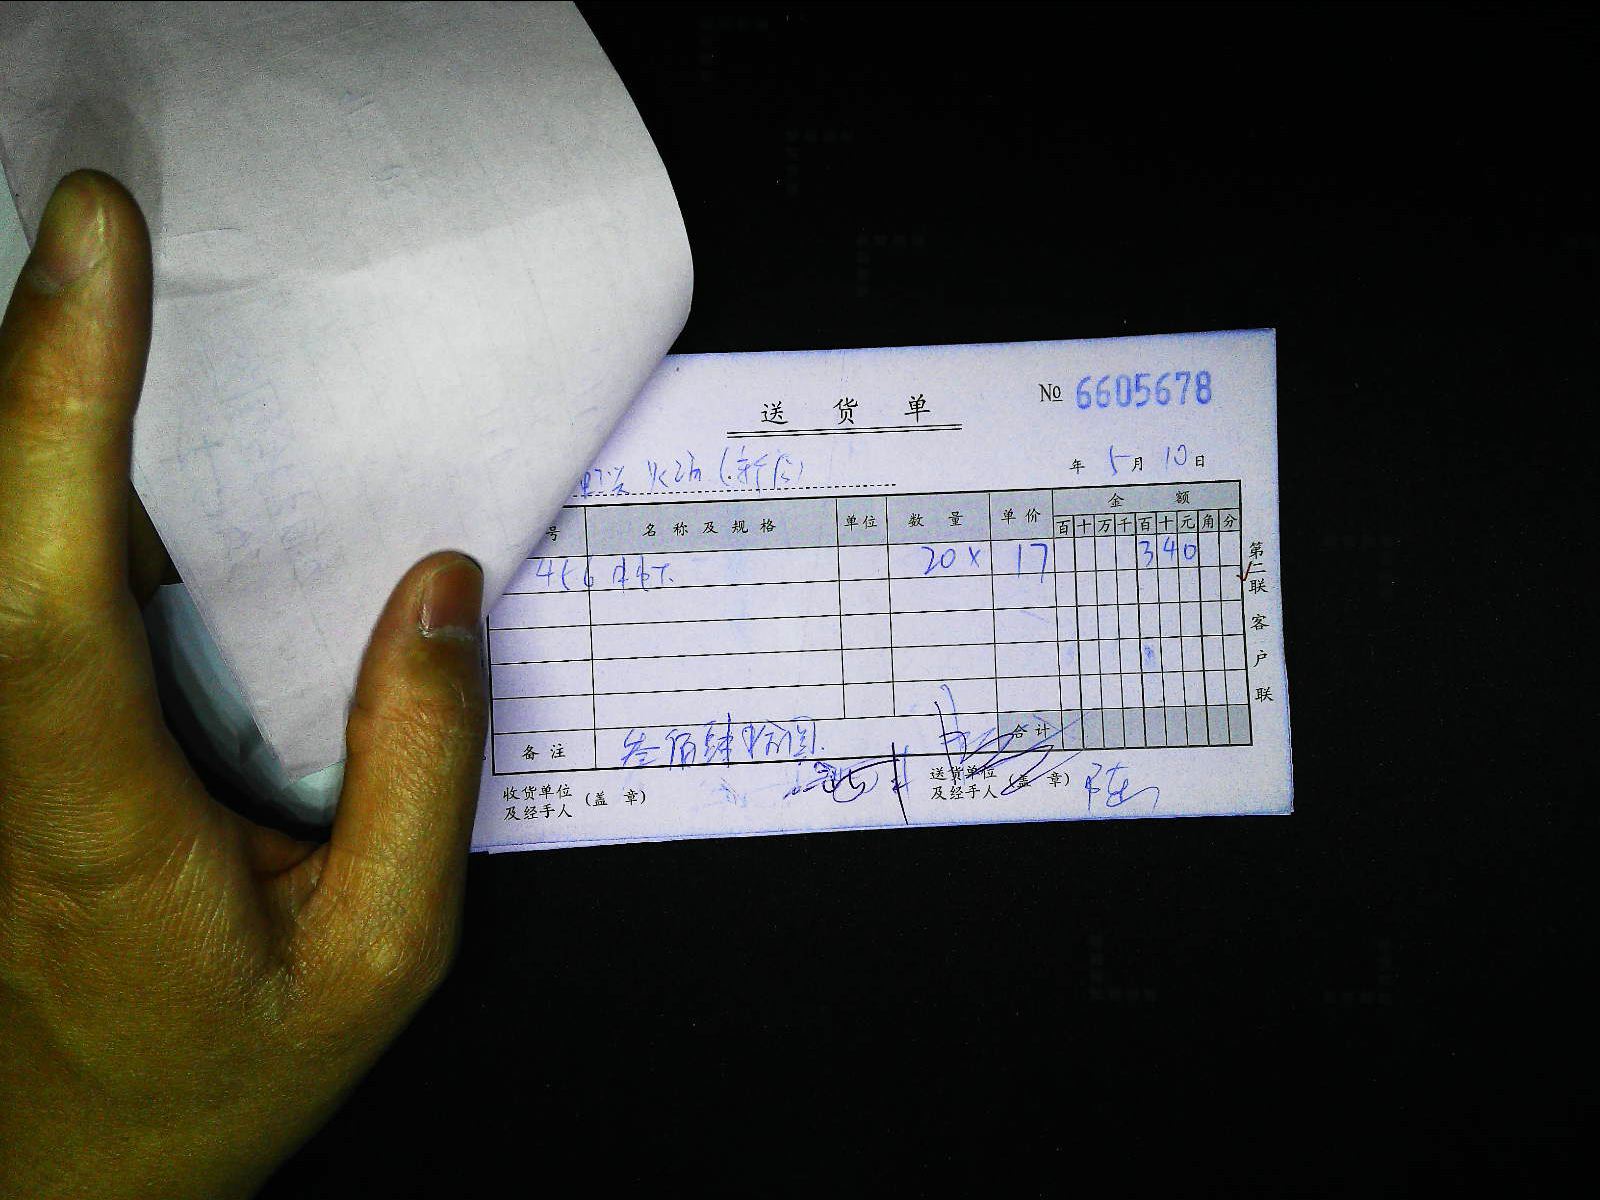 送 货 单
№ 6605678
(新店)
年 5 月 10 日
号 名 称 及 规 格 单位 数 量 单 价 金 额
百 十 万 千 百 十 元 角 分
456 20 x 17 3 4 0
备 注 叁佰肆拾圆.
合 计
收货单位及经手人 (盖 章)
送货单位及经手人 (盖 章) 陈
第二联 客户联